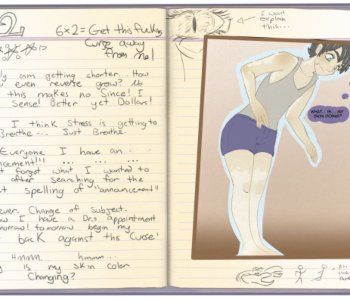 6x2 = Get this fucking
Curse away
from me!
ly am getting shorter.. How
even reverse grow? It
this makes no Since! I
Sense! Better yet Dollars!
I think Stress is getting to
Breathe... Just Breathe.
Everyone I have an
ncement!!! ... ... ...
forgot what I wanted to
after searching for the
t spelling of "announcement"
ever. Change of Subject.
I have a Drs. appointment
morrow! tomorrow begin my
back against this Curse'
Hmmm. hmmm..
is my skin color
Changing?
I want
explain
this...
WHAT... IS... MY
SKIN DOING?